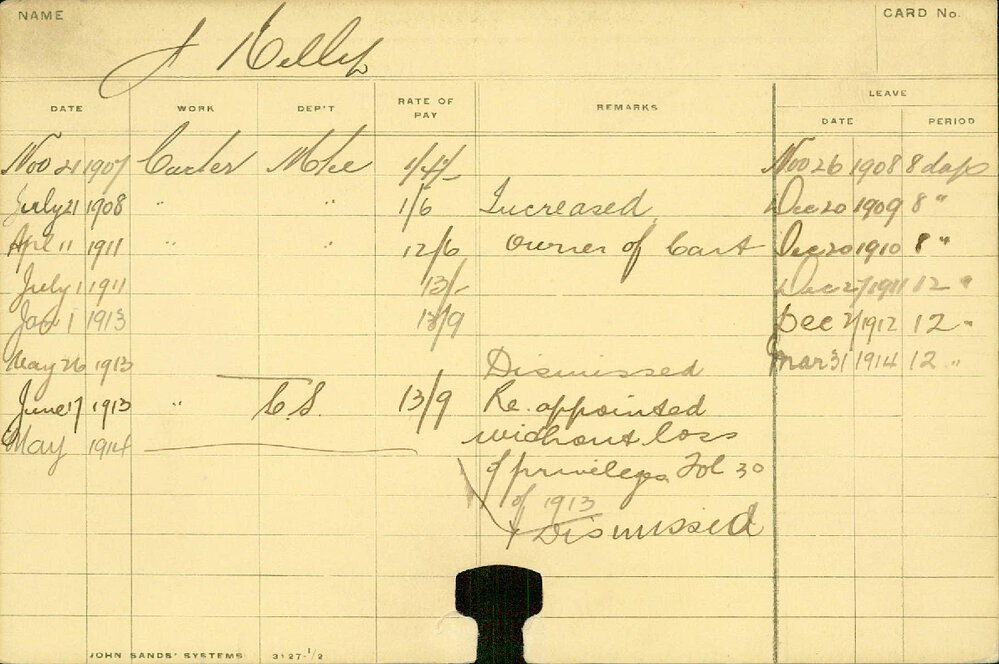 NAME
J Kelly
CARD No.
DATE WORK DEP'T RATE OF PAY REMARKS LEAVE DATE PERIOD
Nov 21 1907 Carter Nov 26 1908 8 days
July 21 1908 " " 1/6 Increased Dec 20 1909 8 "
Apl 11 1911 " " 12/6 Owner of Cart Dec 20 1910 8 "
July 1 1911 13/- Dec 27 1911 12 "
Jan 1 1913 13/9 Dec 21 1912 12 "
May 26 1913 Dismissed Mar 31 1914 12 "
June 17 1913 " C.S. 13/9 Re.appointed
May 1914 without loss
of privileges Fol 30
of 1913
Dismissed
JOHN SANDS' SYSTEMS 3127-1/2